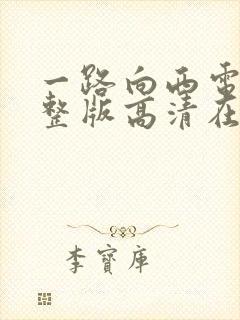 一路向西电
整版高清在
李寶庫